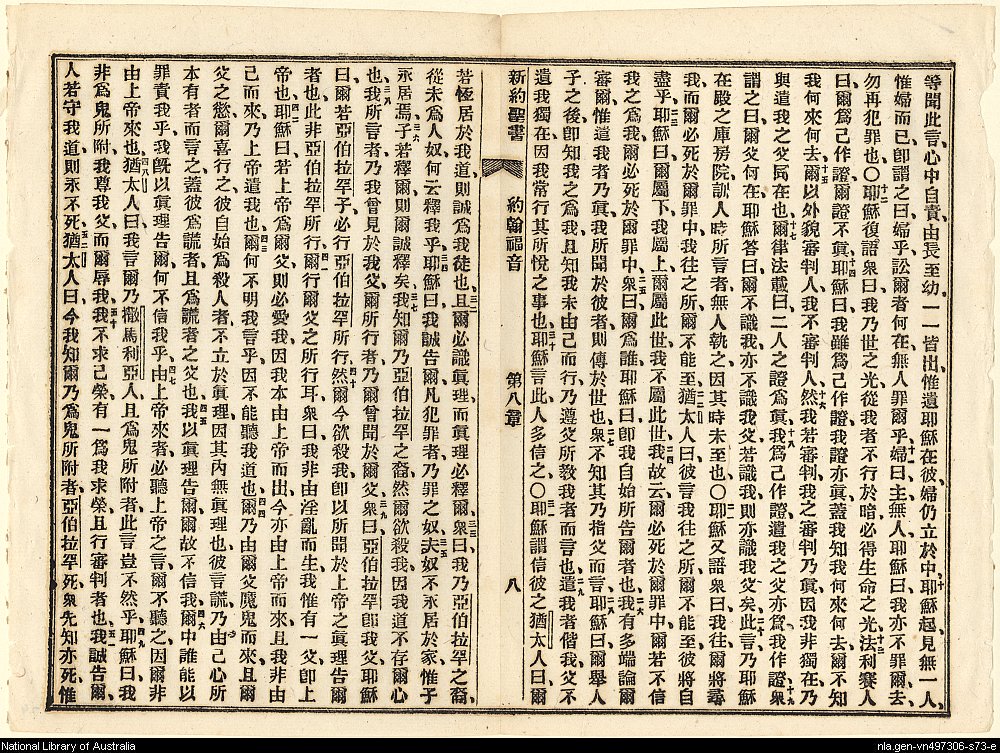 等聞此言、心中自責、由長至幼、一一皆出、惟遺耶穌在彼、婦仍立於中、耶穌起見無一人、
惟婦而已、卽謂之曰、婦乎、訟爾者何在、無人罪爾乎、婦曰、主、無人、耶穌曰、我亦不罪爾、去、
勿再犯罪也○耶穌復語衆曰、我乃世之光、從我者不行於暗、必得生命之光、法利賽人
曰、爾爲己作證、爾證不眞、耶穌曰、我雖爲己作證、我證亦眞、蓋我知我何來何去、爾不知
我何來何去、爾以外貌審判人、我不審判人、然我若審判、我之審判乃眞、因我非獨在、乃
與遣我之父同在也、爾律法載曰、二人之證爲眞、我爲己作證、遣我之父亦爲我作證、衆
謂之曰、爾父何在、耶穌答曰、爾不識我、亦不識我父、若識我、則亦識我父矣、此言乃耶穌
在殿之庫房院訓人時所言者、無人執之、因其時未至也○耶穌又語衆曰、我往、爾將尋
我、而爾必死於爾罪中、我往之所、爾不能至、猶太人曰、彼言我往之所、爾不能至、彼將自
盡乎、耶穌曰、爾屬下、我屬上、爾屬此世、我不屬此世、我故云、爾必死於爾罪中、爾若不信
我之爲我、爾必死於爾罪中、衆曰、爾爲誰、耶穌曰、卽我自始所告爾者也、我有多端論爾
審爾、惟遣我者乃眞、我所聞於彼者、則傳於世也、衆不知其乃指父而言、耶穌曰、爾舉人
子之後、卽知我之爲我、且知我未由己而行、乃遵父所敎我者而言也、遣我者偕我、父不
遺我獨在、因我常行其所悅之事也、耶穌言此、人多信之、○耶穌謂信彼之猶太人曰、爾
新約聖書 約翰福音 第八章 八
若恆居於我道、則誠爲我徒也、且爾必識眞理、而眞理必釋爾、衆曰、我乃亞伯拉罕之裔、
從未爲人奴、何云釋我乎、耶穌曰、我誠告爾、凡犯罪者、乃罪之奴、夫奴不永居於家、惟子
永居焉、子若釋爾、則爾誠釋矣、我知爾乃亞伯拉罕之裔、然爾欲殺我、因我道不存爾心
也、我所言者、乃我曾見於我父、爾所行者、乃爾曾聞於爾父、衆曰、亞伯拉罕卽我父、耶穌
曰、爾若亞伯拉罕子、必行亞伯拉罕所行、然爾今欲殺我、卽以所聞於上帝之眞理告爾
者也、此非亞伯拉罕所行、爾行爾父之所行耳、衆曰、我非由淫亂而生、我惟有一父、卽上
帝也、耶穌曰、若上帝爲爾父、則必愛我、因我本由上帝而出、今亦由上帝而來、且我非由
己而來、乃上帝遣我也、爾何不明我言乎、因不能聽我道也、爾乃由爾父魔鬼而來、爾
父之慾、爾喜行之、彼自始爲殺人者、不立於眞理、因其內無眞理也、彼言謊、乃由己心所
本有者而言之、蓋彼爲謊者、且爲謊者之父也、我以眞理告爾、爾故不信我、爾中誰能以
罪責我乎、我旣以眞理告爾、何不信我乎、由上帝來者、必聽上帝之言、爾不聽之、因爾非
由上帝來也、猶太人曰、我言爾乃撒馬利亞人、且爲鬼所附者、此言豈不然乎、耶穌曰、我
非爲鬼所附、我尊我父、而爾辱我、我不求己榮、有一爲我求榮、且行審判者也、我誠告爾、
人若守我道、則永不死、猶太人曰、今我知爾乃爲鬼所附者、亞伯拉罕死、衆先知亦死、惟
National Library of Australia
nla.gen-vn497306-s73-e